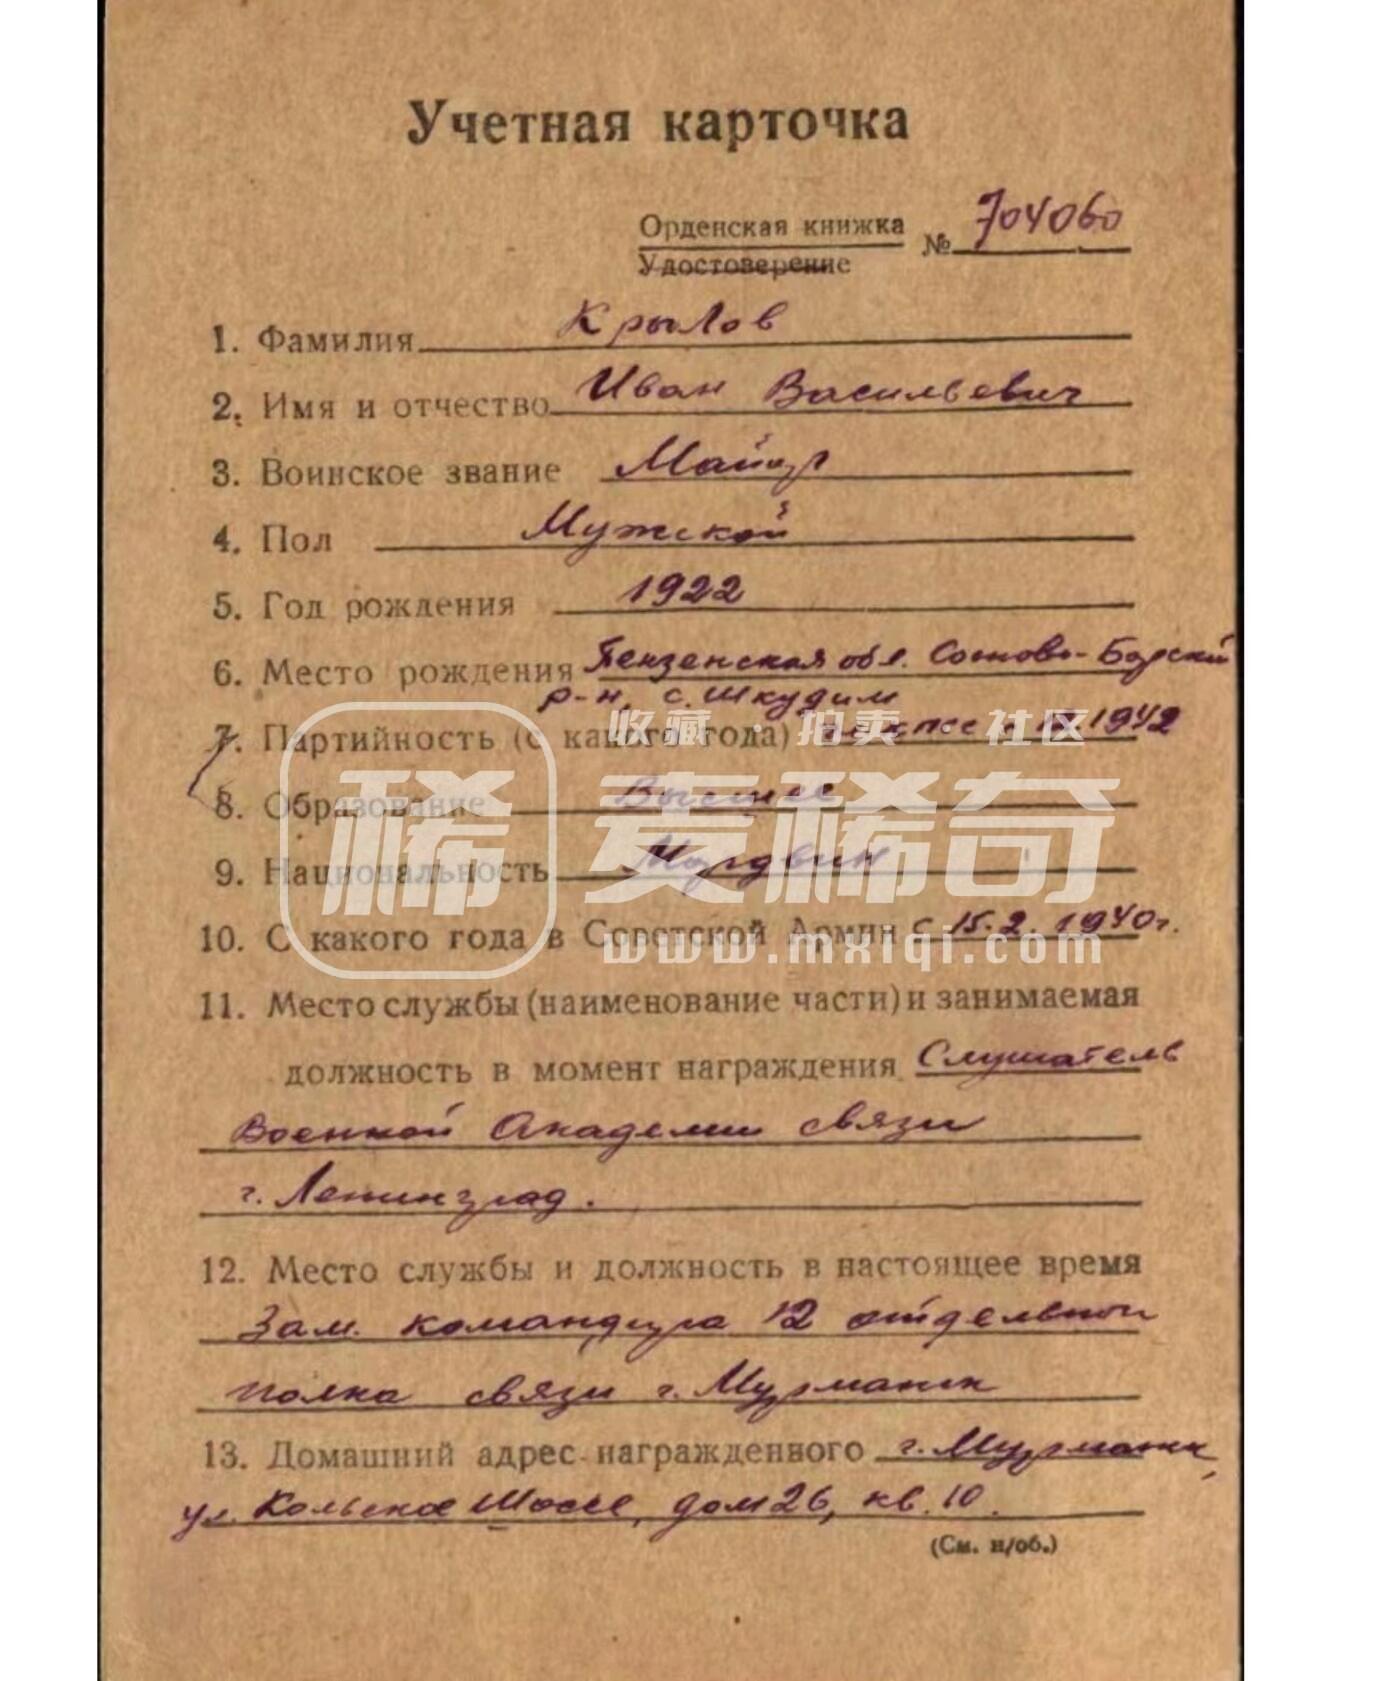 Учетная карточка
Орденская книжка № 704060
Удостоверение
1. Фамилия Крылов
2. Имя и отчество Иван Васильевич
3. Воинское звание Майор
4. Пол Мужской
5. Год рождения 1922
6. Место рождения Пензенская обл. Сосново-Борский
р-н, с. Шкудим
7. Партийность (с какого года) 1942
收藏 · 拍卖 · 社区
8. Образование Высшее
稀 麦稀奇
9. Национальность Мордвин
10. С какого года в Советской Армии с 15.2.1940г.
www.mxiqi.com
11. Место службы (наименование части) и занимаемая
должность в момент награждения Слушатель
Военной Академии связи
г. Ленинград.
12. Место службы и должность в настоящее время
Зам. командира 12 отдельного
полка связи г. Мурманск
13. Домашний адрес награжденного г. Мурманск,
ул. Кольское Шоссе, дом 26, кв. 10.
(См. н/об.)